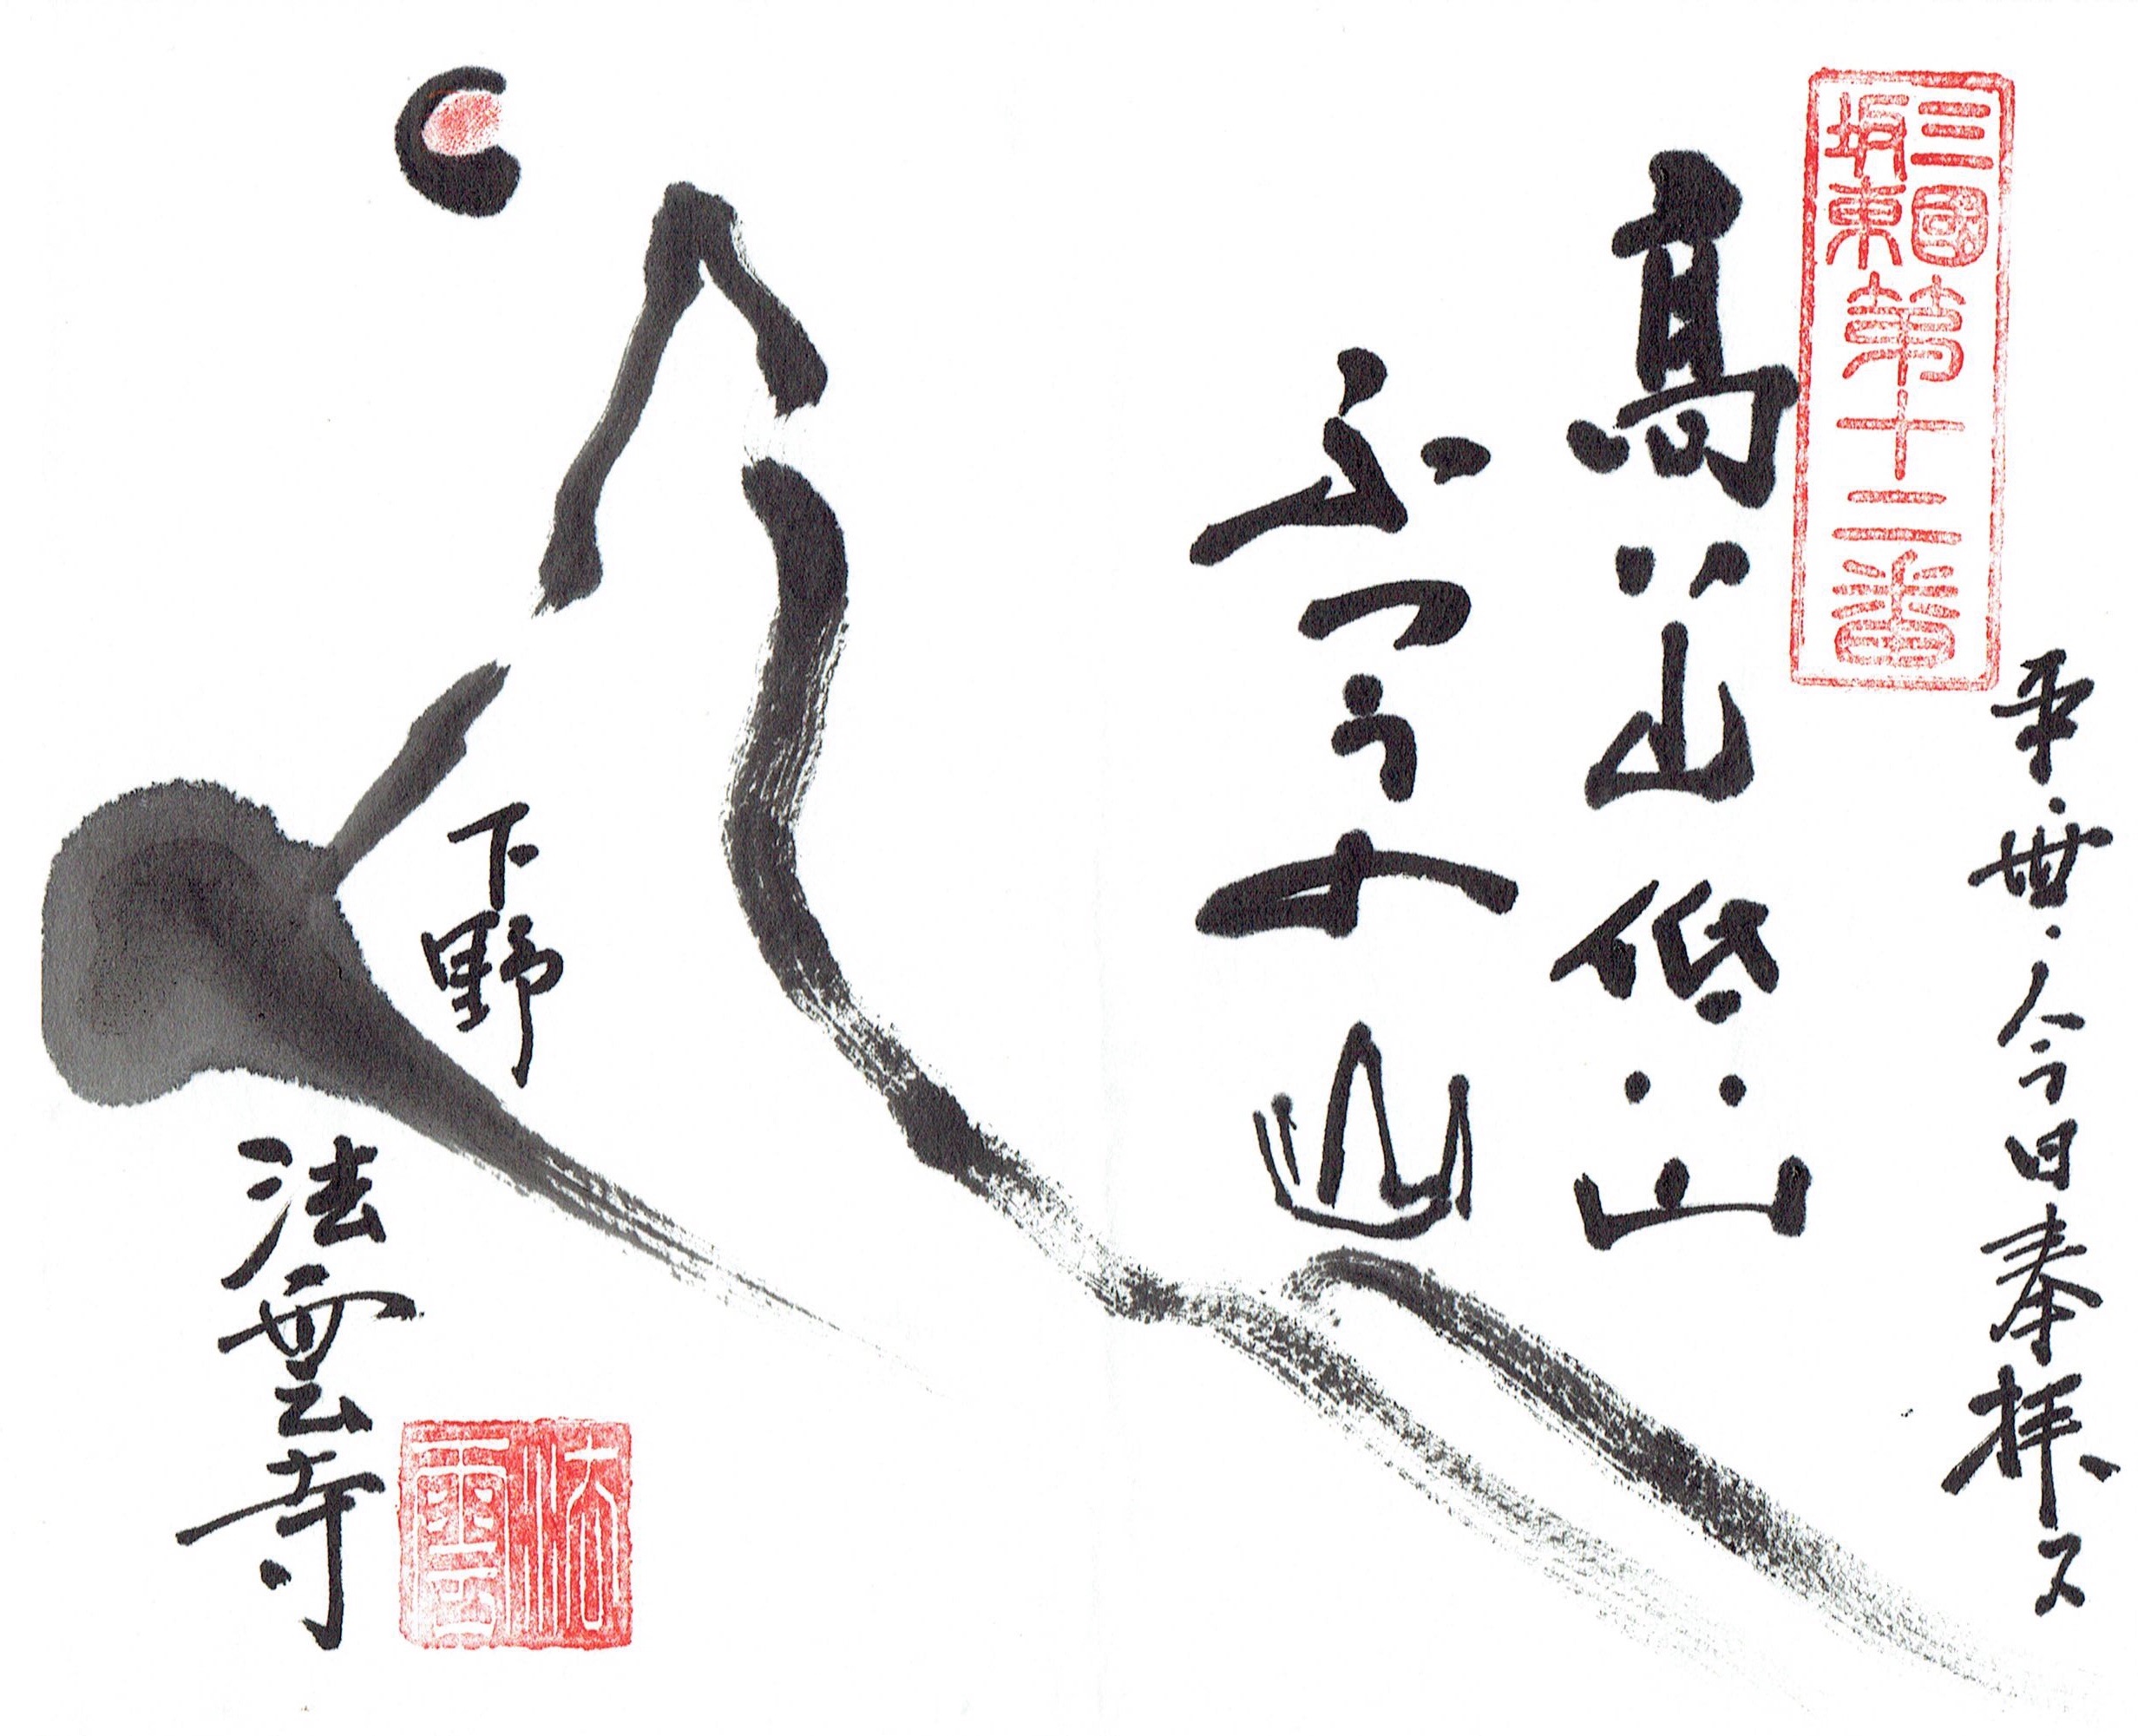 三國
坂東
第十二番
平・丗・今日奉拝ス
高い山低い山
ふつうの山
下野
法雲寺
法雲